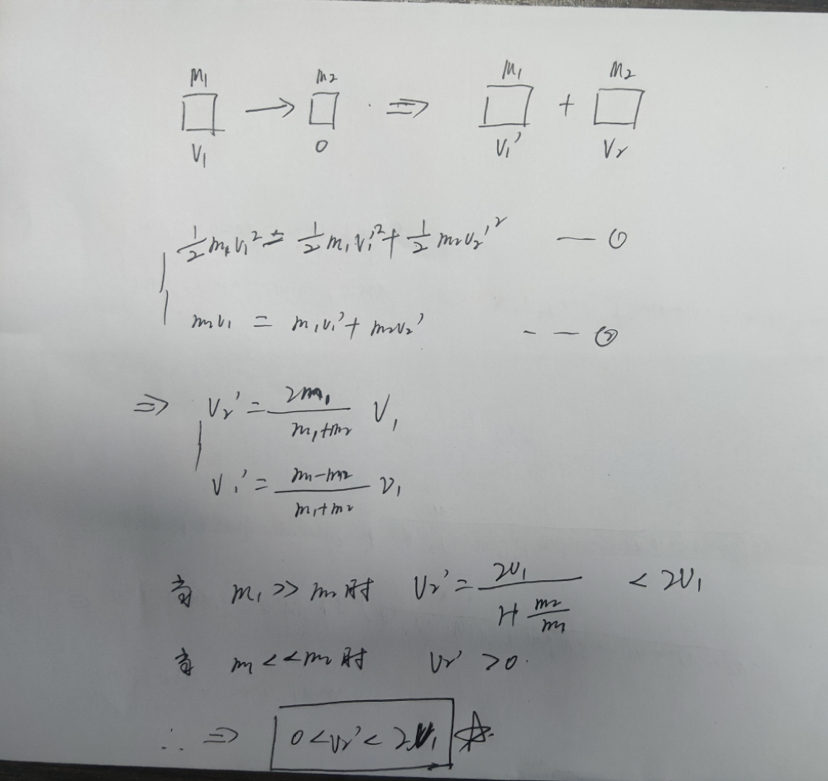 m₁ m₂ m₁ m₂
□ → □ ⇒ □ + □
v₁ 0 v₁' v₂
½m₁v₁² = ½m₁v₁'² + ½m₂v₂'² — ①
m₁v₁ = m₁v₁' + m₂v₂' -- — ②
⇒ v₂' = 2m₁/(m₁+m₂) v₁
v₁' = (m₁-m₂)/(m₁+m₂) v₁
当 m₁>>m₂时 v₂' = 2v₁/(1+m₂/m₁) < 2v₁
当 m₁<<m₂时 v₂' >0.
∴ ⇒ 0<v₂'<2v₁ ☆